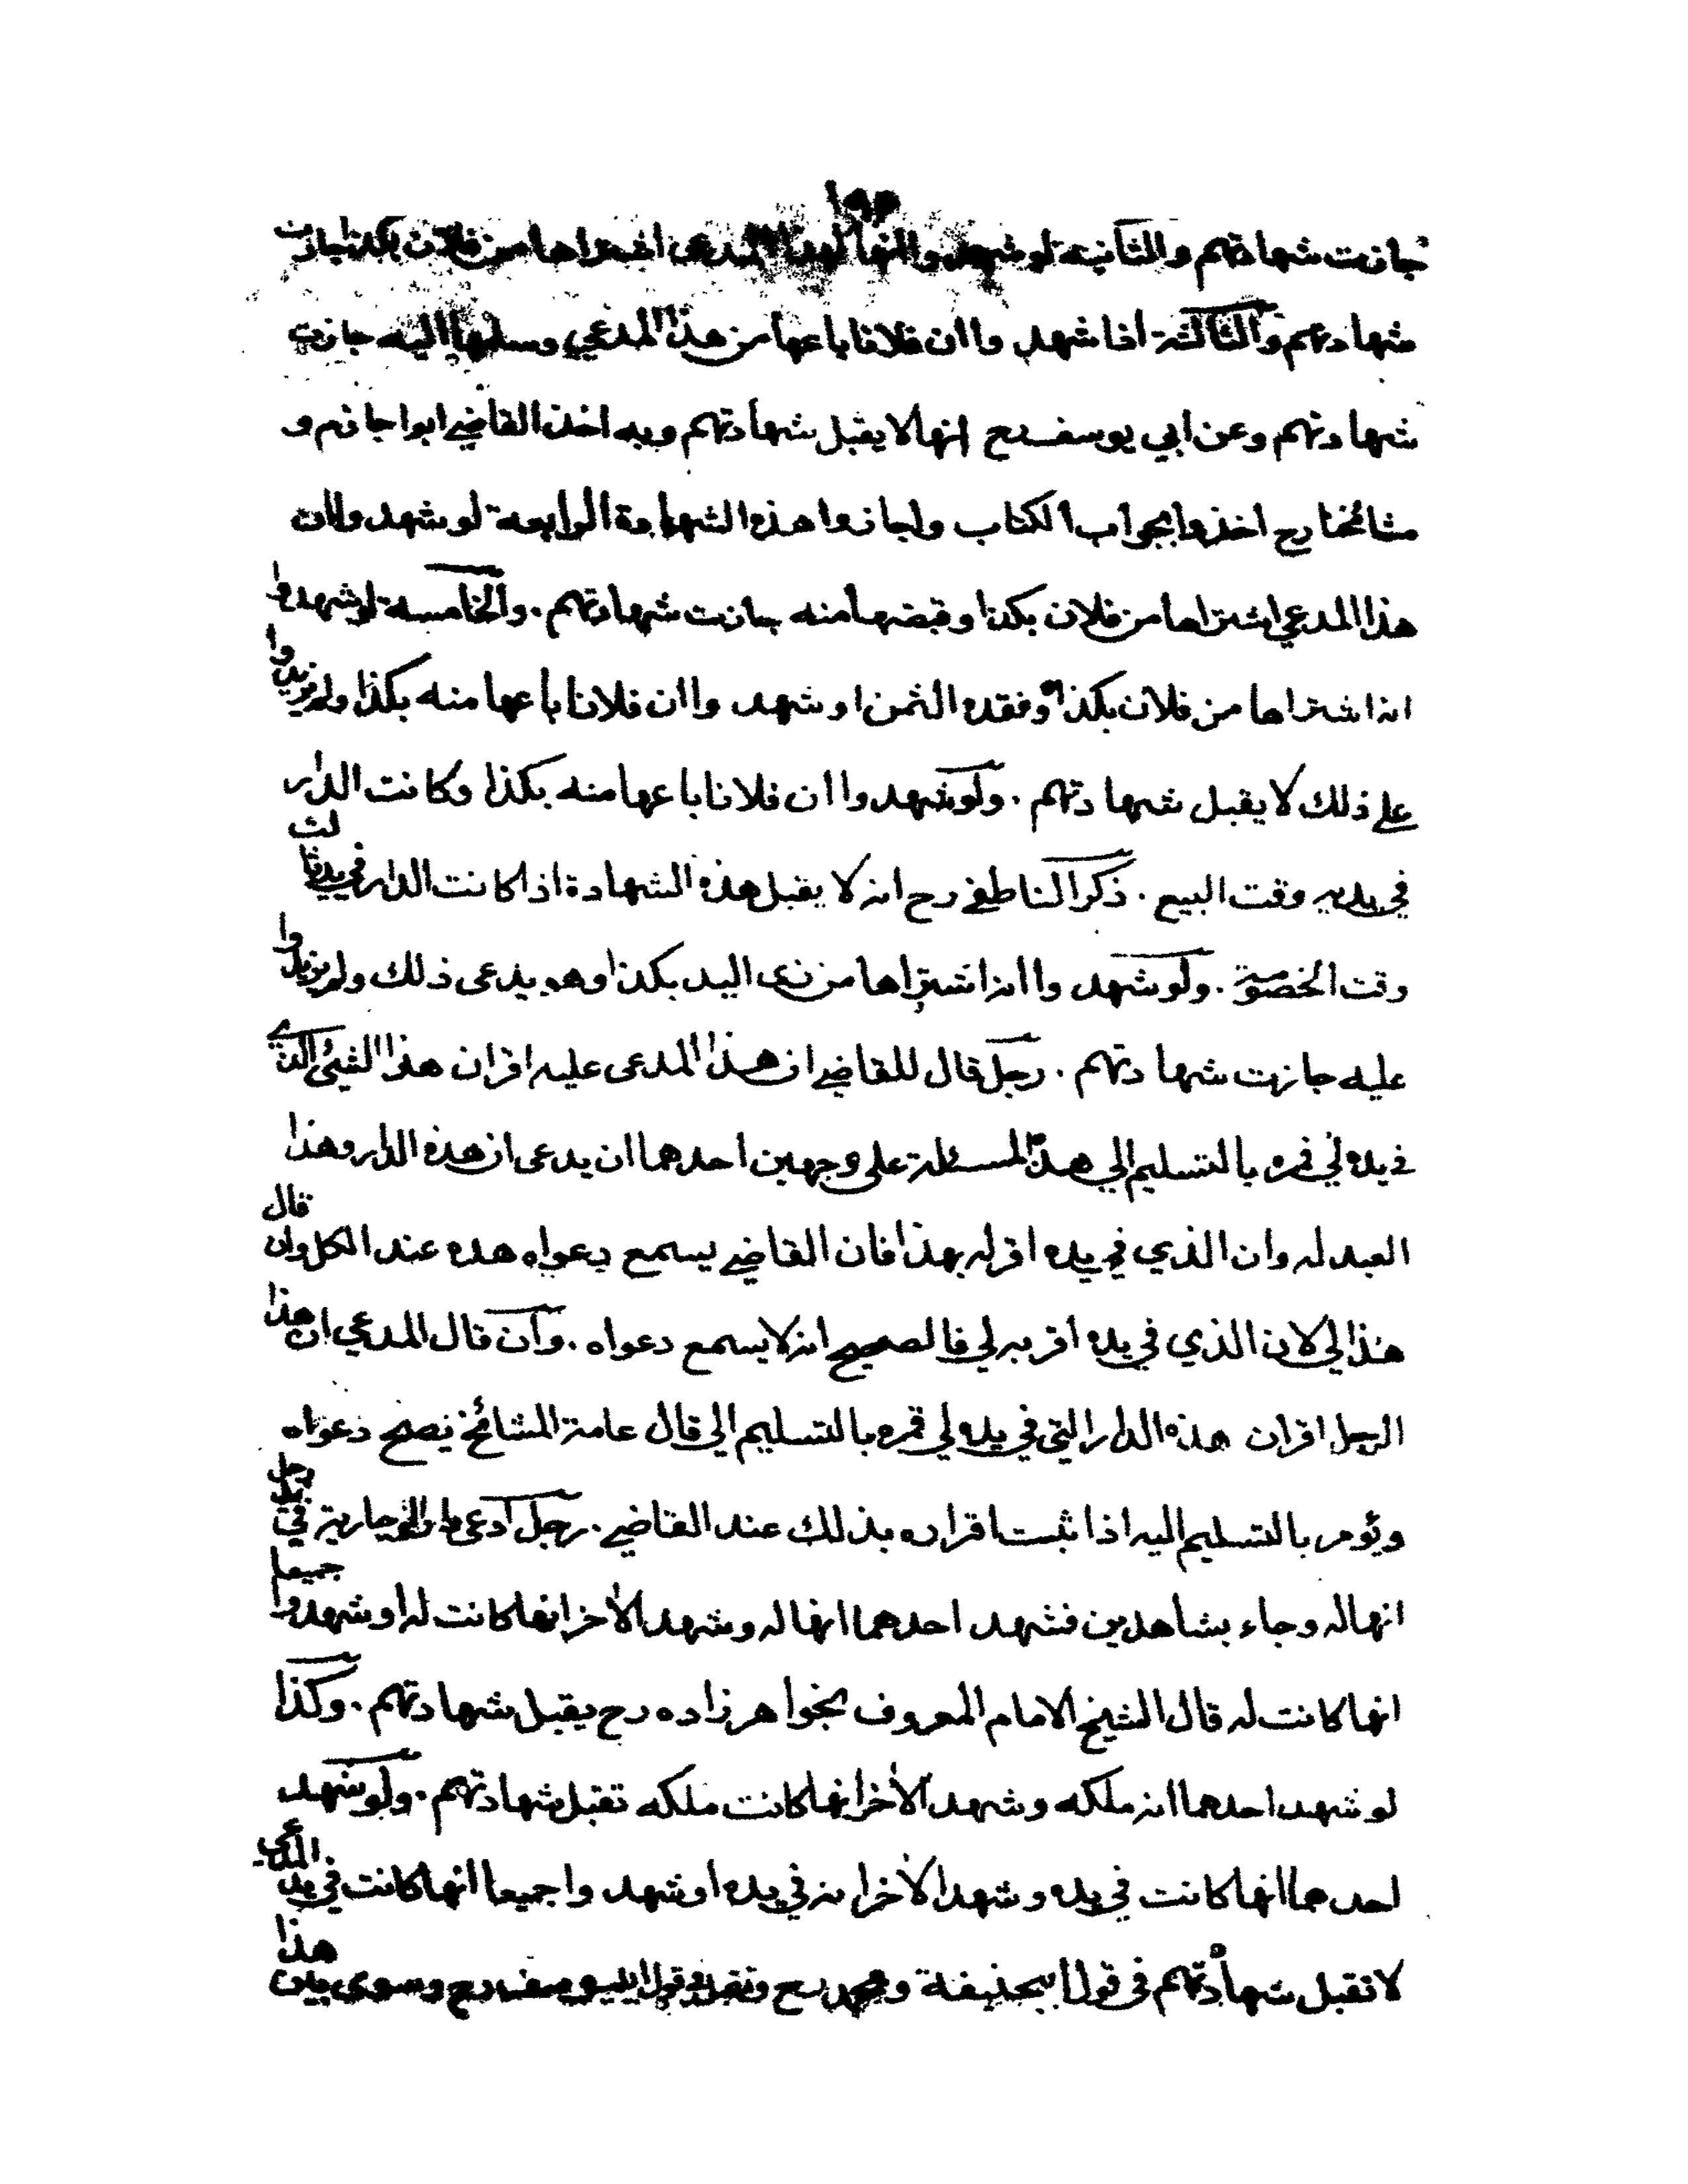 ١٩٣
جازت شهادتهم والثانية لو شهدوا انها لهذا المدعى اشتراها من فلان بكذا جازت
شهادتهم والثالثة اذا شهدوا ان فلانا باعها من هذا المدعي وسلمها اليه جازت
شهادتهم وعن ابي يوسف رح انها لا يقبل شهادتهم وبه اخذ القاضي ابوا جازم و
مشائخنا رح اخذوا بجواب الكتاب واجازوا هذه الشهادة الرابعة لو شهدوا ان
هذا المدعي اشتراها من فلان بكذا وقبضها منه جازت شهادتهم . والخامسة لو شهدوا
انه اشتراها من فلان بكذا ونقده الثمن او شهدوا ان فلانا باعها منه بكذا ولم يزيدوا
على ذلك لا يقبل شهادتهم . ولو شهدوا ان فلانا باعها منه بكذا وكانت الدار
في يديه وقت البيع . ذكر الناطفي رح انه لا يقبل هذه الشهادة اذا كانت الدار في يد ثالث
وقت الخصومة . ولو شهدوا انه اشتراها من ذي اليد بكذا وهو يدعى ذلك ولم يزيدوا
عليه جازت شهادتهم . رجل قال للقاضي ان هذا المدعى عليه اقر ان هذا الشيئ الذي
في يده لي فمره بالتسليم الي هذه المسئلة على وجهين احدهما ان يدعى ان هذه الدار وهذا
العبد له وان الذي في يده اقر له بهذا فان القاضي يسمع دعواه هذه عند الكل وان قال
هذا لي لان الذي في يده اقر به لي فالصحيح انه لا يسمع دعواه . وان قال المدعي ان هذا
الرجل اقر ان هذه الدار التي في يده لي فمره بالتسليم الي قال عامة المشائخ يصح دعواه
ويؤمر بالتسليم اليه اذا ثبت اقراره بذلك عند القاضي . رجل ادعى جارية في يد رجل
انها له وجاء بشاهدين فشهد احدهما انها له وشهد الاخر انها كانت له او شهدوا جميعا
انها كانت له قال الشيخ الامام المعروف بخواهر زاده رح يقبل شهادتهم . وكذا
لو شهد احدهما انه ملكه وشهد الاخر انها كانت ملكه تقبل شهادتهم . ولو شهد
احدهما انها كانت في يده وشهد الاخر انه في يده او شهدوا جميعا انها كانت في يد المدعي
لا تقبل شهادتهم في قول ابيحنيفة ومحمد رح وتقبل في قول ابييوسف رح وسوى بين هذا